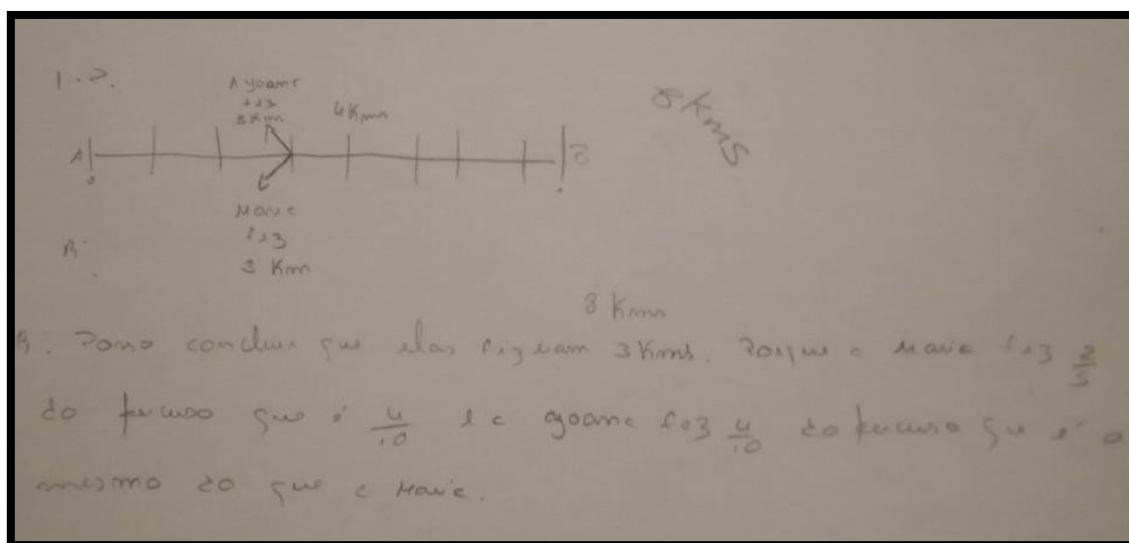 1.2.
A Joana
fiz
3 Km
4 Kms
8 Kms
A
B
0
Maria
fiz
3 Km
R:
8 Kms
R: Posso concluir que elas fizeram 3 Kms. Porque a Maria fiz 2/5
do percurso que é 4/10 e a Joana foz 4/10 do percurso que é o
mesmo do que a Maria.